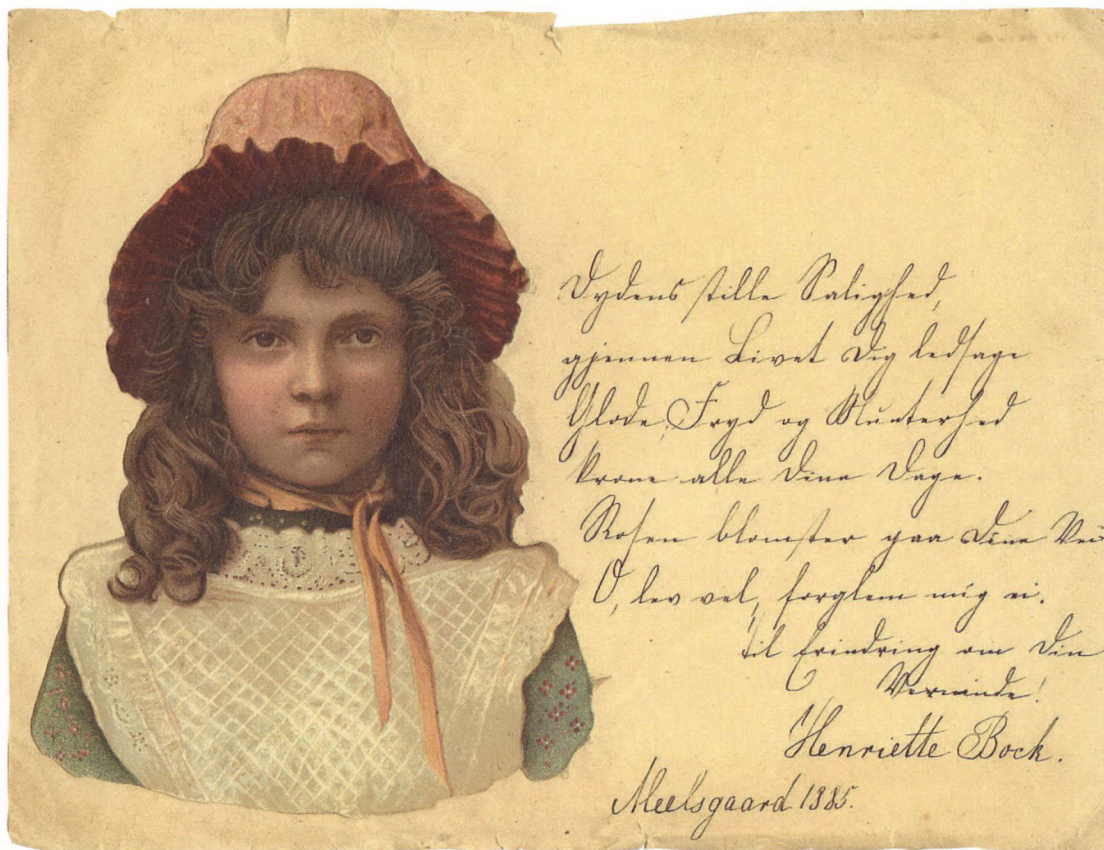 Dydens stille Salighed,
gjennem Livet Dig ledsage
Glæde, Fryd og Munterhed
krone alle Dine Dage.
Rosen blomster paa Dine Vei
O, lev vel, forglem mig ei.
til Erindring om Din
Veninde!
Henriette Bock.
Meelsgaard 1885.